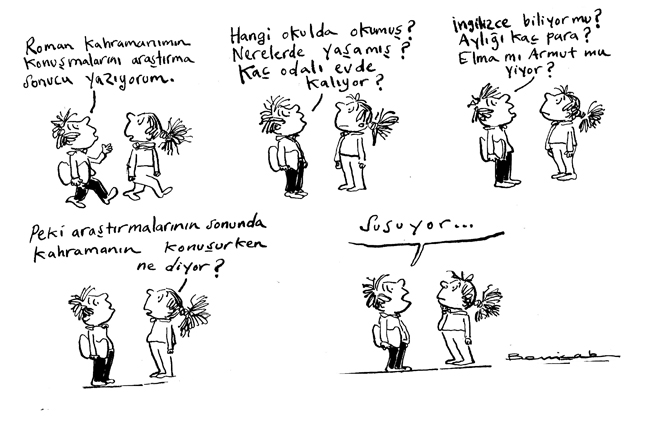 Roman kahramanımın
konuşmalarını araştırma
sonucu yazıyorum.
Hangi okulda okumuş?
Nerelerde yaşamış?
Kaç odalı evde
kalıyor?
İngilizce biliyor mu?
Aylığı kaç para?
Elma mı Armut mu
yiyor?
Peki araştırmalarının sonunda
kahramanın konuşurken
ne diyor?
Susuyor...